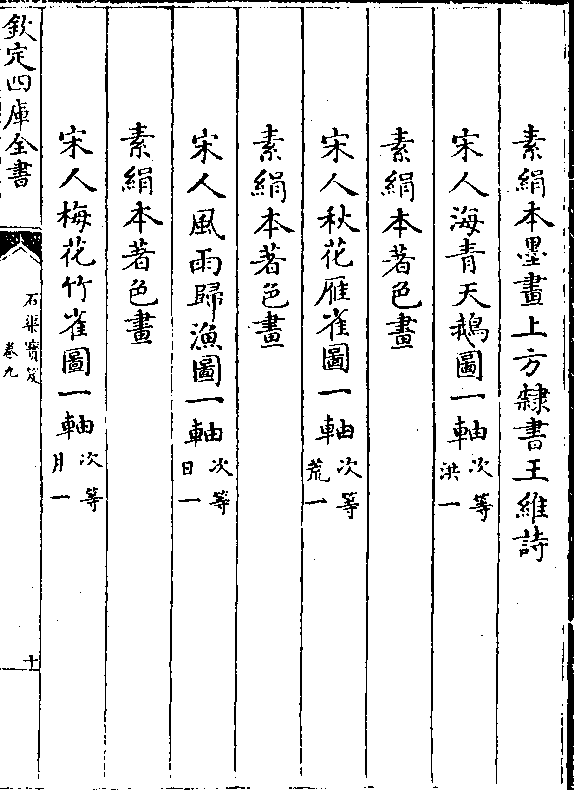 素絹本墨畫上方隸書王維詩
宋人海青天鵝圖一軸次等洪一
素絹本著色畫
宋人秋花雁雀圖一軸次等荒一
素絹本著色畫
宋人風雨歸漁圖一軸次等日一
素絹本著色畫
宋人梅花竹雀圖一軸次等月一
欽定四庫全書
石渠寶笈
卷九
十